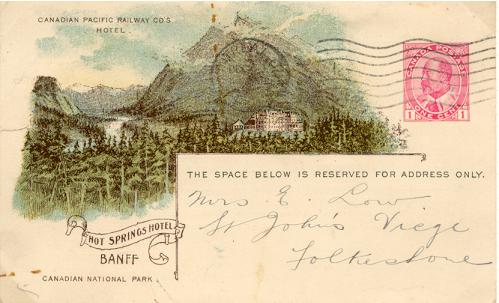 CANADIAN PACIFIC RAILWAY CO'S
HOTEL.
CANADA POSTAGE
1 ONE CENT 1
THE SPACE BELOW IS RESERVED FOR ADDRESS ONLY.
Mrs. E. Low
St John's Viege
Folkestone
HOT SPRINGS HOTEL
BANFF
CANADIAN NATIONAL PARK.